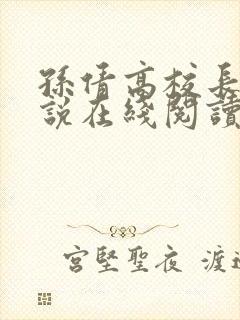 孫倩高校長
說在綫閱讀
宮堅聖夜 渡邊